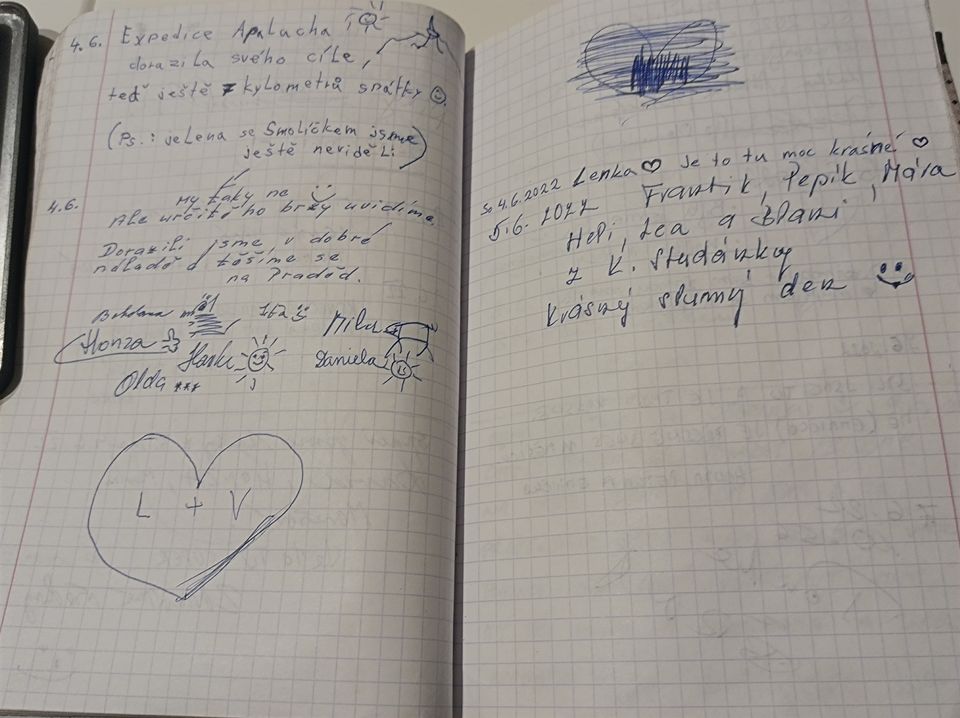 4.6. Expedice Apalucha
dorazila svého cíle,
teď ještě 7 kylometrů spátky
(Ps.: jelena se Smolíčkem jsme
ještě neviděli)
4.6. My taky ne
Ale určitě ho brzy uvidíme.
Dorazili jsme v dobré
náladě a těšíme se
na Praděd.
Bohdana
Honza Hanka Daniela
Olda ***
L + V
So 4.6.2022 Lenka ♡ je to tu moc krásné ♡
5.6. 2022 Frantik, Pepík, Mára
Heli, Lea a
z K. Studánky
krásný slunný den